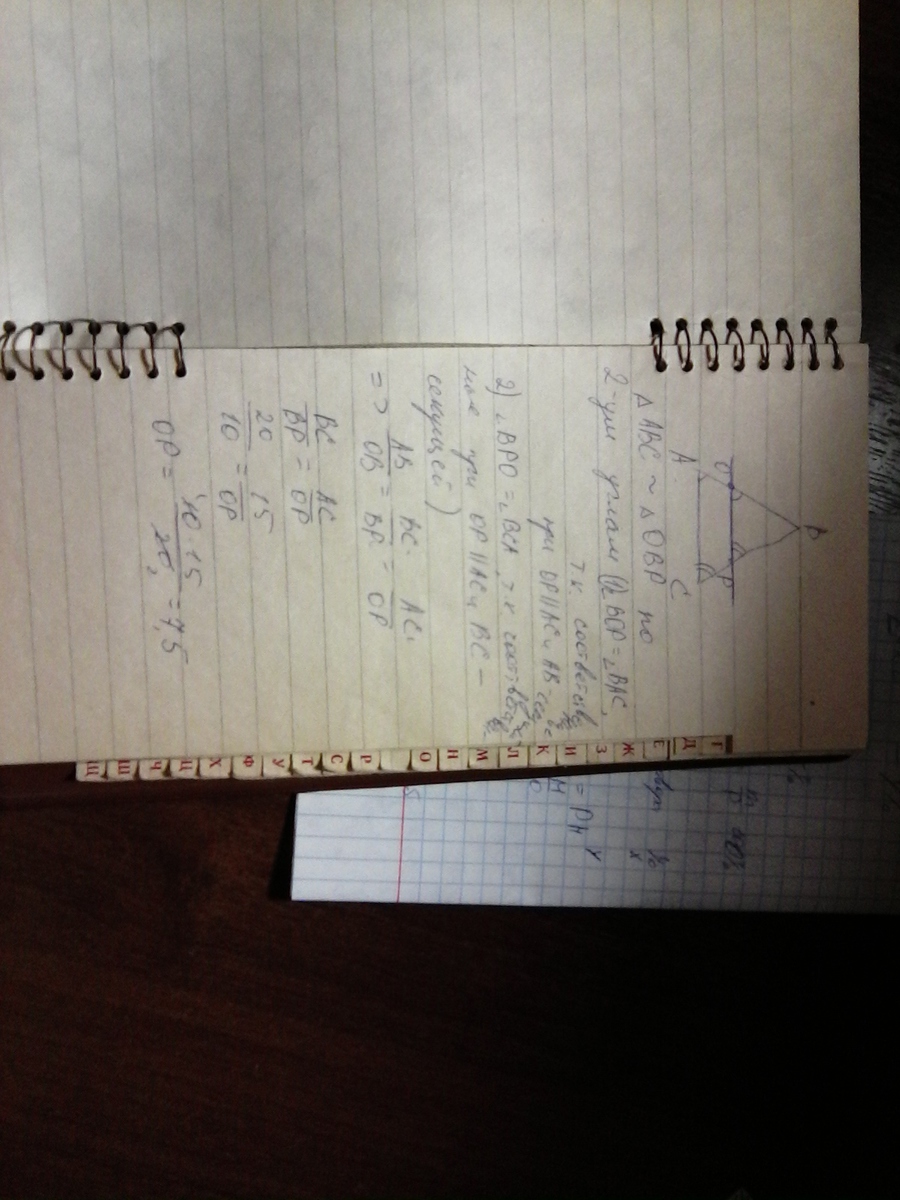 B
O P
A C
△ABC ~ △OBP по
2-ум углам (1)∠BOP=∠BAC,
т.к. соответств.
при OP||AC и AB-сек.
2) ∠BPO=∠BCA, т.к соответств
ные при OP||AC и BC –
секущей)
=> AB/OB = BC/BP = AC/OP
BC/BP = AC/OP
20/10 = 15/OP
OP = 10·15/20 = 7,5
Г
Д
Е
Ж
З
И
К
Л
М
Н
О
Р
С
Т
У
Ф
Х
Ц
Ч
Ш
Щ